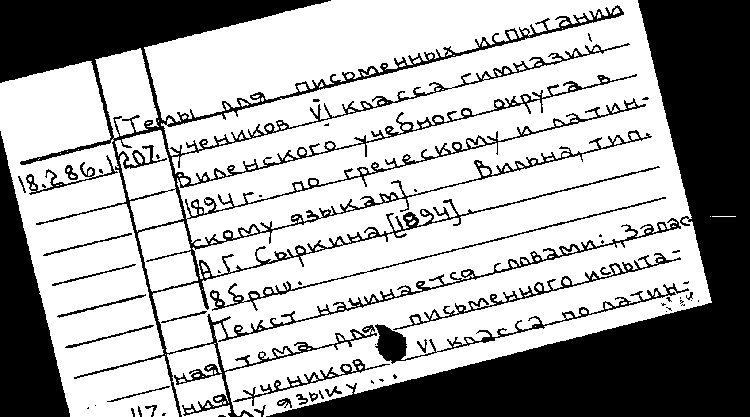 [Темы для письменных испытаний
18.286.1.207. учеников VI класса гимназий
Виленского учебного округа в
1894 г. по греческому и латин-
скому языкам]. Вильна, тип.
А.Г. Сыркина, [1894].
8 брош.
Текст начинается словами: „Запас-
ная тема для письменного испыта-
ния учеников VI класса по латин-
117. му языку...